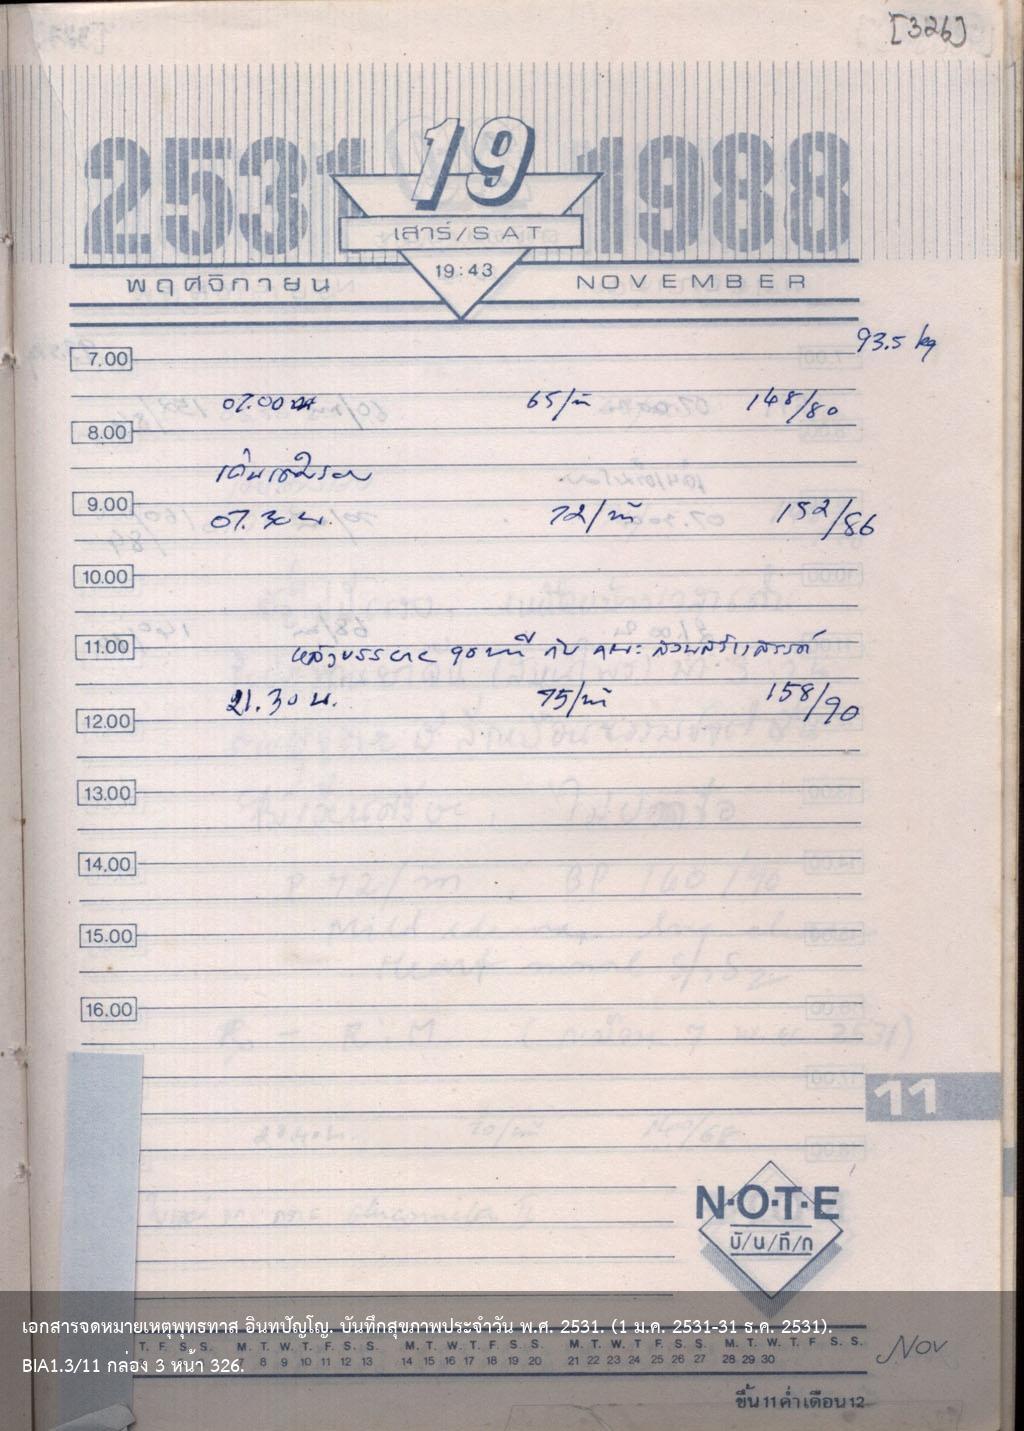 [326]
2531 19 1988
เสาร์/SAT
19:43
พฤศจิกายน NOVEMBER
93.5 kg
7.00
07.00 น 65/น 148/80
8.00
9.00
07.30 น. 72/น 152/86
10.00
11.00
หลังบรรยาย ๑๐ นาที กับ คณะ สวนสร้างสรรค์
21.30 น. 75/น 158/90
12.00
13.00
14.00
15.00
16.00
11
N·O·T·E
บั/น/ทึ/ก
เอกสารจดหมายเหตุพุทธทาส อินทปัญโญ. บันทึกสุขภาพประจำวัน พ.ศ. 2531. (1 ม.ค. 2531-31 ธ.ค. 2531).
T. F. S. S. M. T. W. T. F. S. S. M. T. W. T. F. S. S. M. T. W. T. F. S. S. M. T. W. T. F. S. S.
BIA1.3/11 กล่อง 3 หน้า 326.
8 9 10 11 12 13 14 15 16 17 18 19 20 21 22 23 24 25 26 27 28 29 30
Nov
ขึ้น 11 ค่ำ เดือน 12